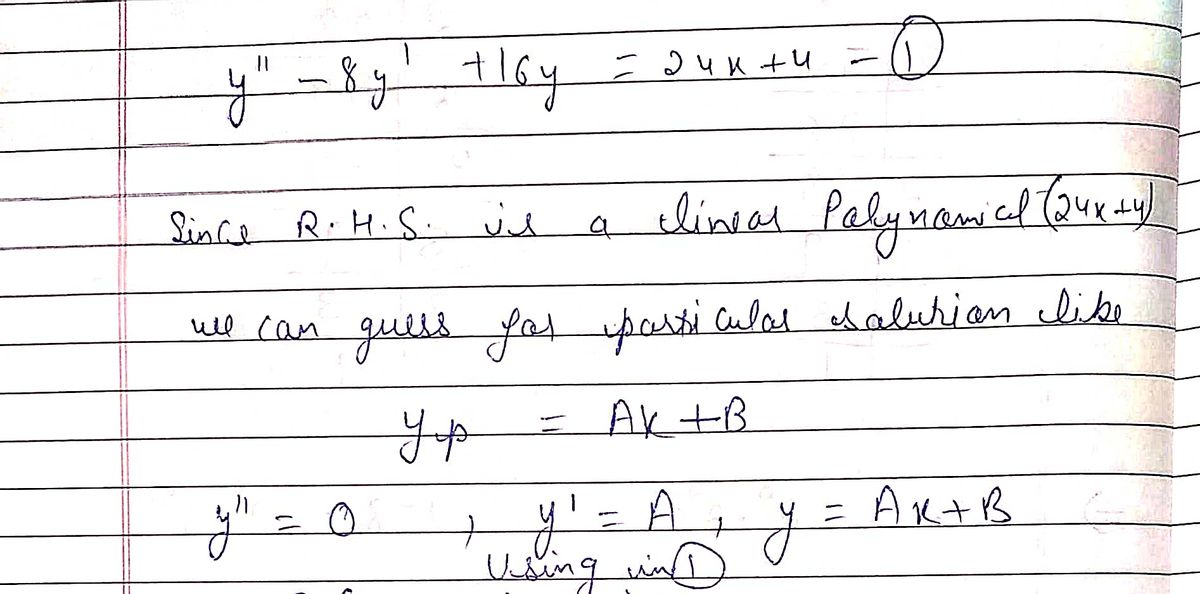 y'' - 8y' + 16y = 24x + 4 - ①
Since R.H.S. is a linear Polynomial (24x+4)
we can guess for particular solution like
yp = Ax + B
y'' = 0 , y' = A , y = Ax + B
Using in ①